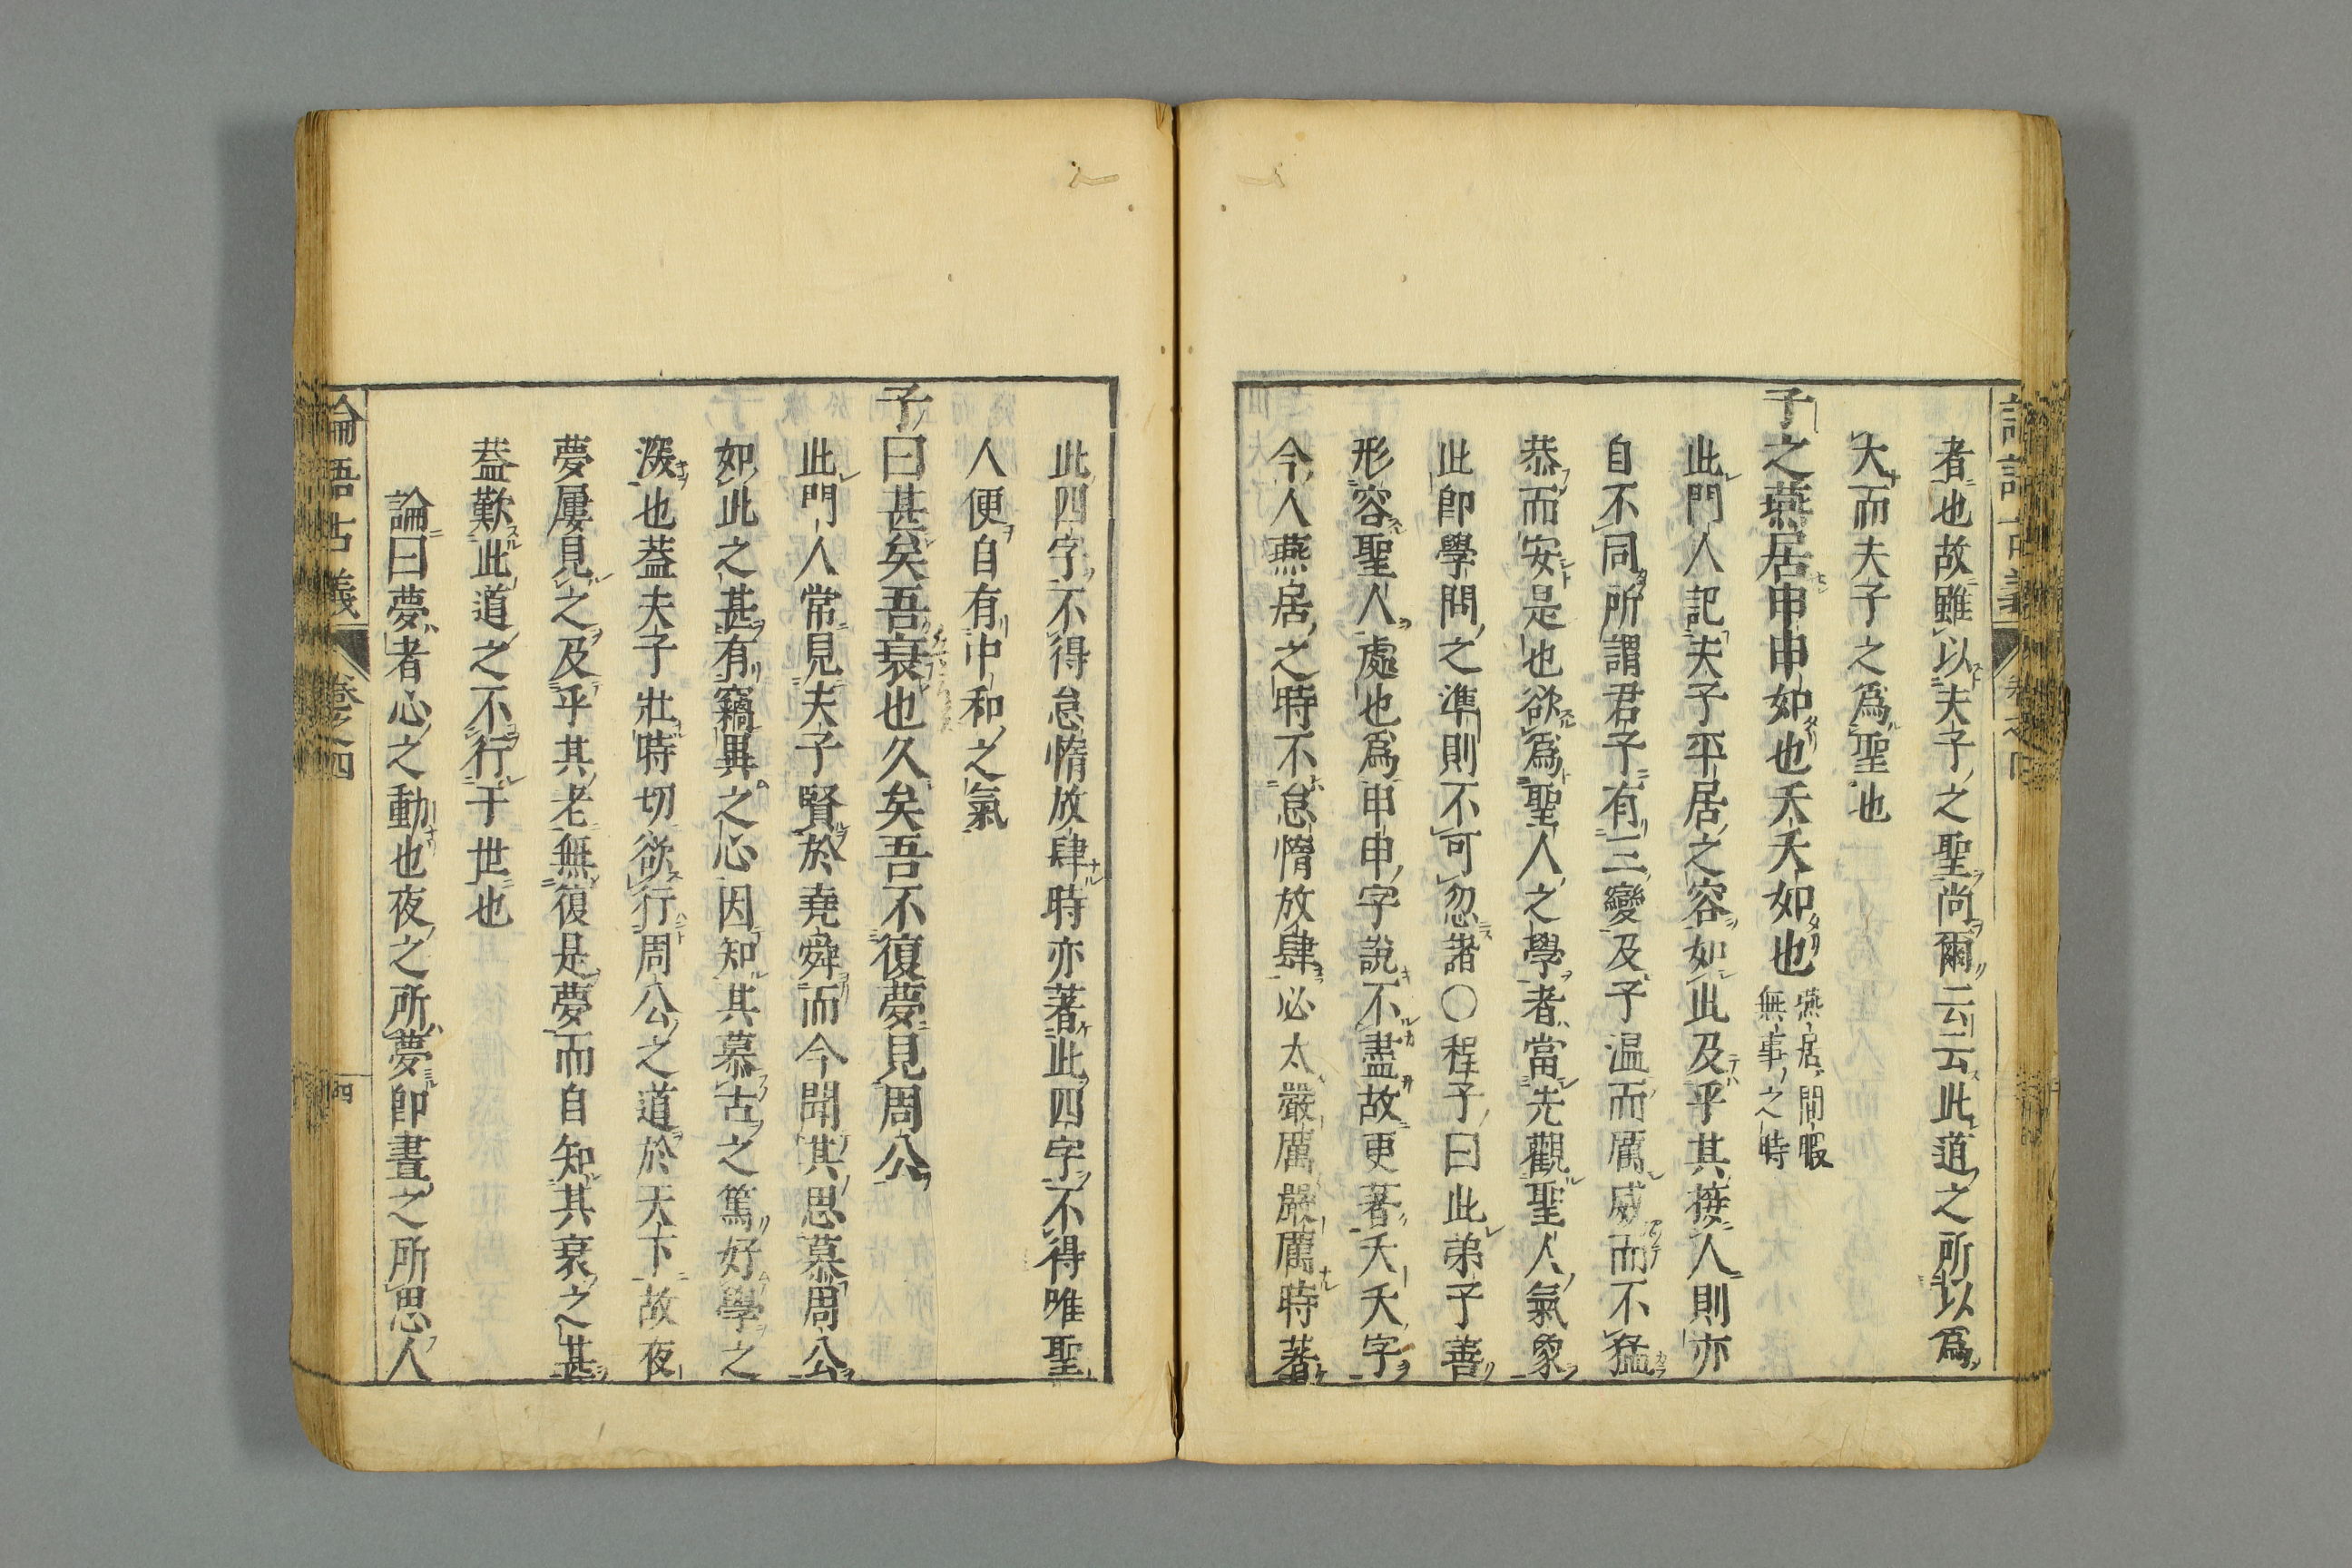 者也故雖以夫子之聖尚爾云云此道之所以爲
大而夫子之爲聖也
子之燕居申申如也夭夭如也燕居間暇
無事之時
此門人記夫子平居之容如此及乎其接人則亦
自不同所謂君子有三變及子温而厲威而不猛
恭而安是也欲爲聖人之學者當先觀聖人氣象
此卽學問之準則不可忽諸〇程子曰此弟子善
形容聖人處也爲申申字說不盡故更著夭夭字
今人燕居之時不怠惰放肆必太嚴厲嚴厲時著
此四字不得怠惰放肆時亦著此四字不得唯聖
人便自有中和之氣
子曰甚矣吾衰也久矣吾不復夢見周公
此門人常見夫子賢於堯舜而今聞其思慕周公
如此之甚有竊異之心因知其慕古之篤好學之
深也葢夫子壯時切欲行周公之道於天下故夜
夢屢見之及乎其老無復是夢而自知其衰之甚
葢歎此道之不行于世也
論曰夢者心之動也夜之所夢卽晝之所思人
論語古義 卷之四 四